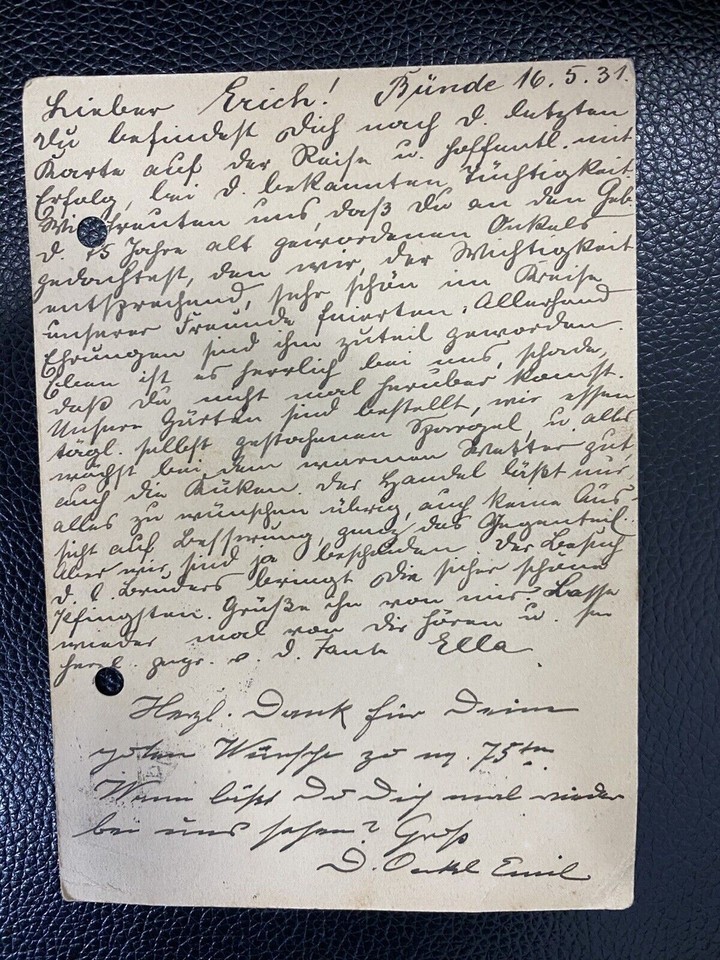 Lieber Erich! Bünde 16.5.31.
Du befindest Dich nach d. letzten
Karte auf der Reise u. hoffentl. mit
Erfolg, bei d. bekannten Tüchtigkeit.
Wir freuten uns, daß Du an den Geb.
d. 75 Jahre alt gewordenen Onkels
gedachtest, den wir, der Wichtigkeit
entsprechend, sehr schön im Kreise
unserer Freunde feierten. Allerhand
Ehrungen sind ihm zuteil geworden.
Eben ist es herrlich bei uns, schade,
daß Du nicht mal herüber kannst.
Unsere Gärten sind bestellt, wir essen
tägl. selbst gestochenen Spargel, u. alles
wächst bei dem warmen Wetter gut,
auch die Küken. Der Handel läßt nur
alles zu wünschen übrig, auch keine Aus-
sicht auf Besserung, ganz das Gegenteil.
Aber wir sind ja bescheiden. Der Besuch
d. l. Bruders bringt Dir sicher schöne
Pfingsten. Grüße ihn von mir. Lasse
wieder mal von Dir hören u. sei
herzl. gegr. v. d. Tante Ella
Herzl. Dank für Deine
guten Wünsche zu m. 75ten
Wann läßt Du Dich mal wieder
bei uns sehen? Gruß
D. Onkel Emil